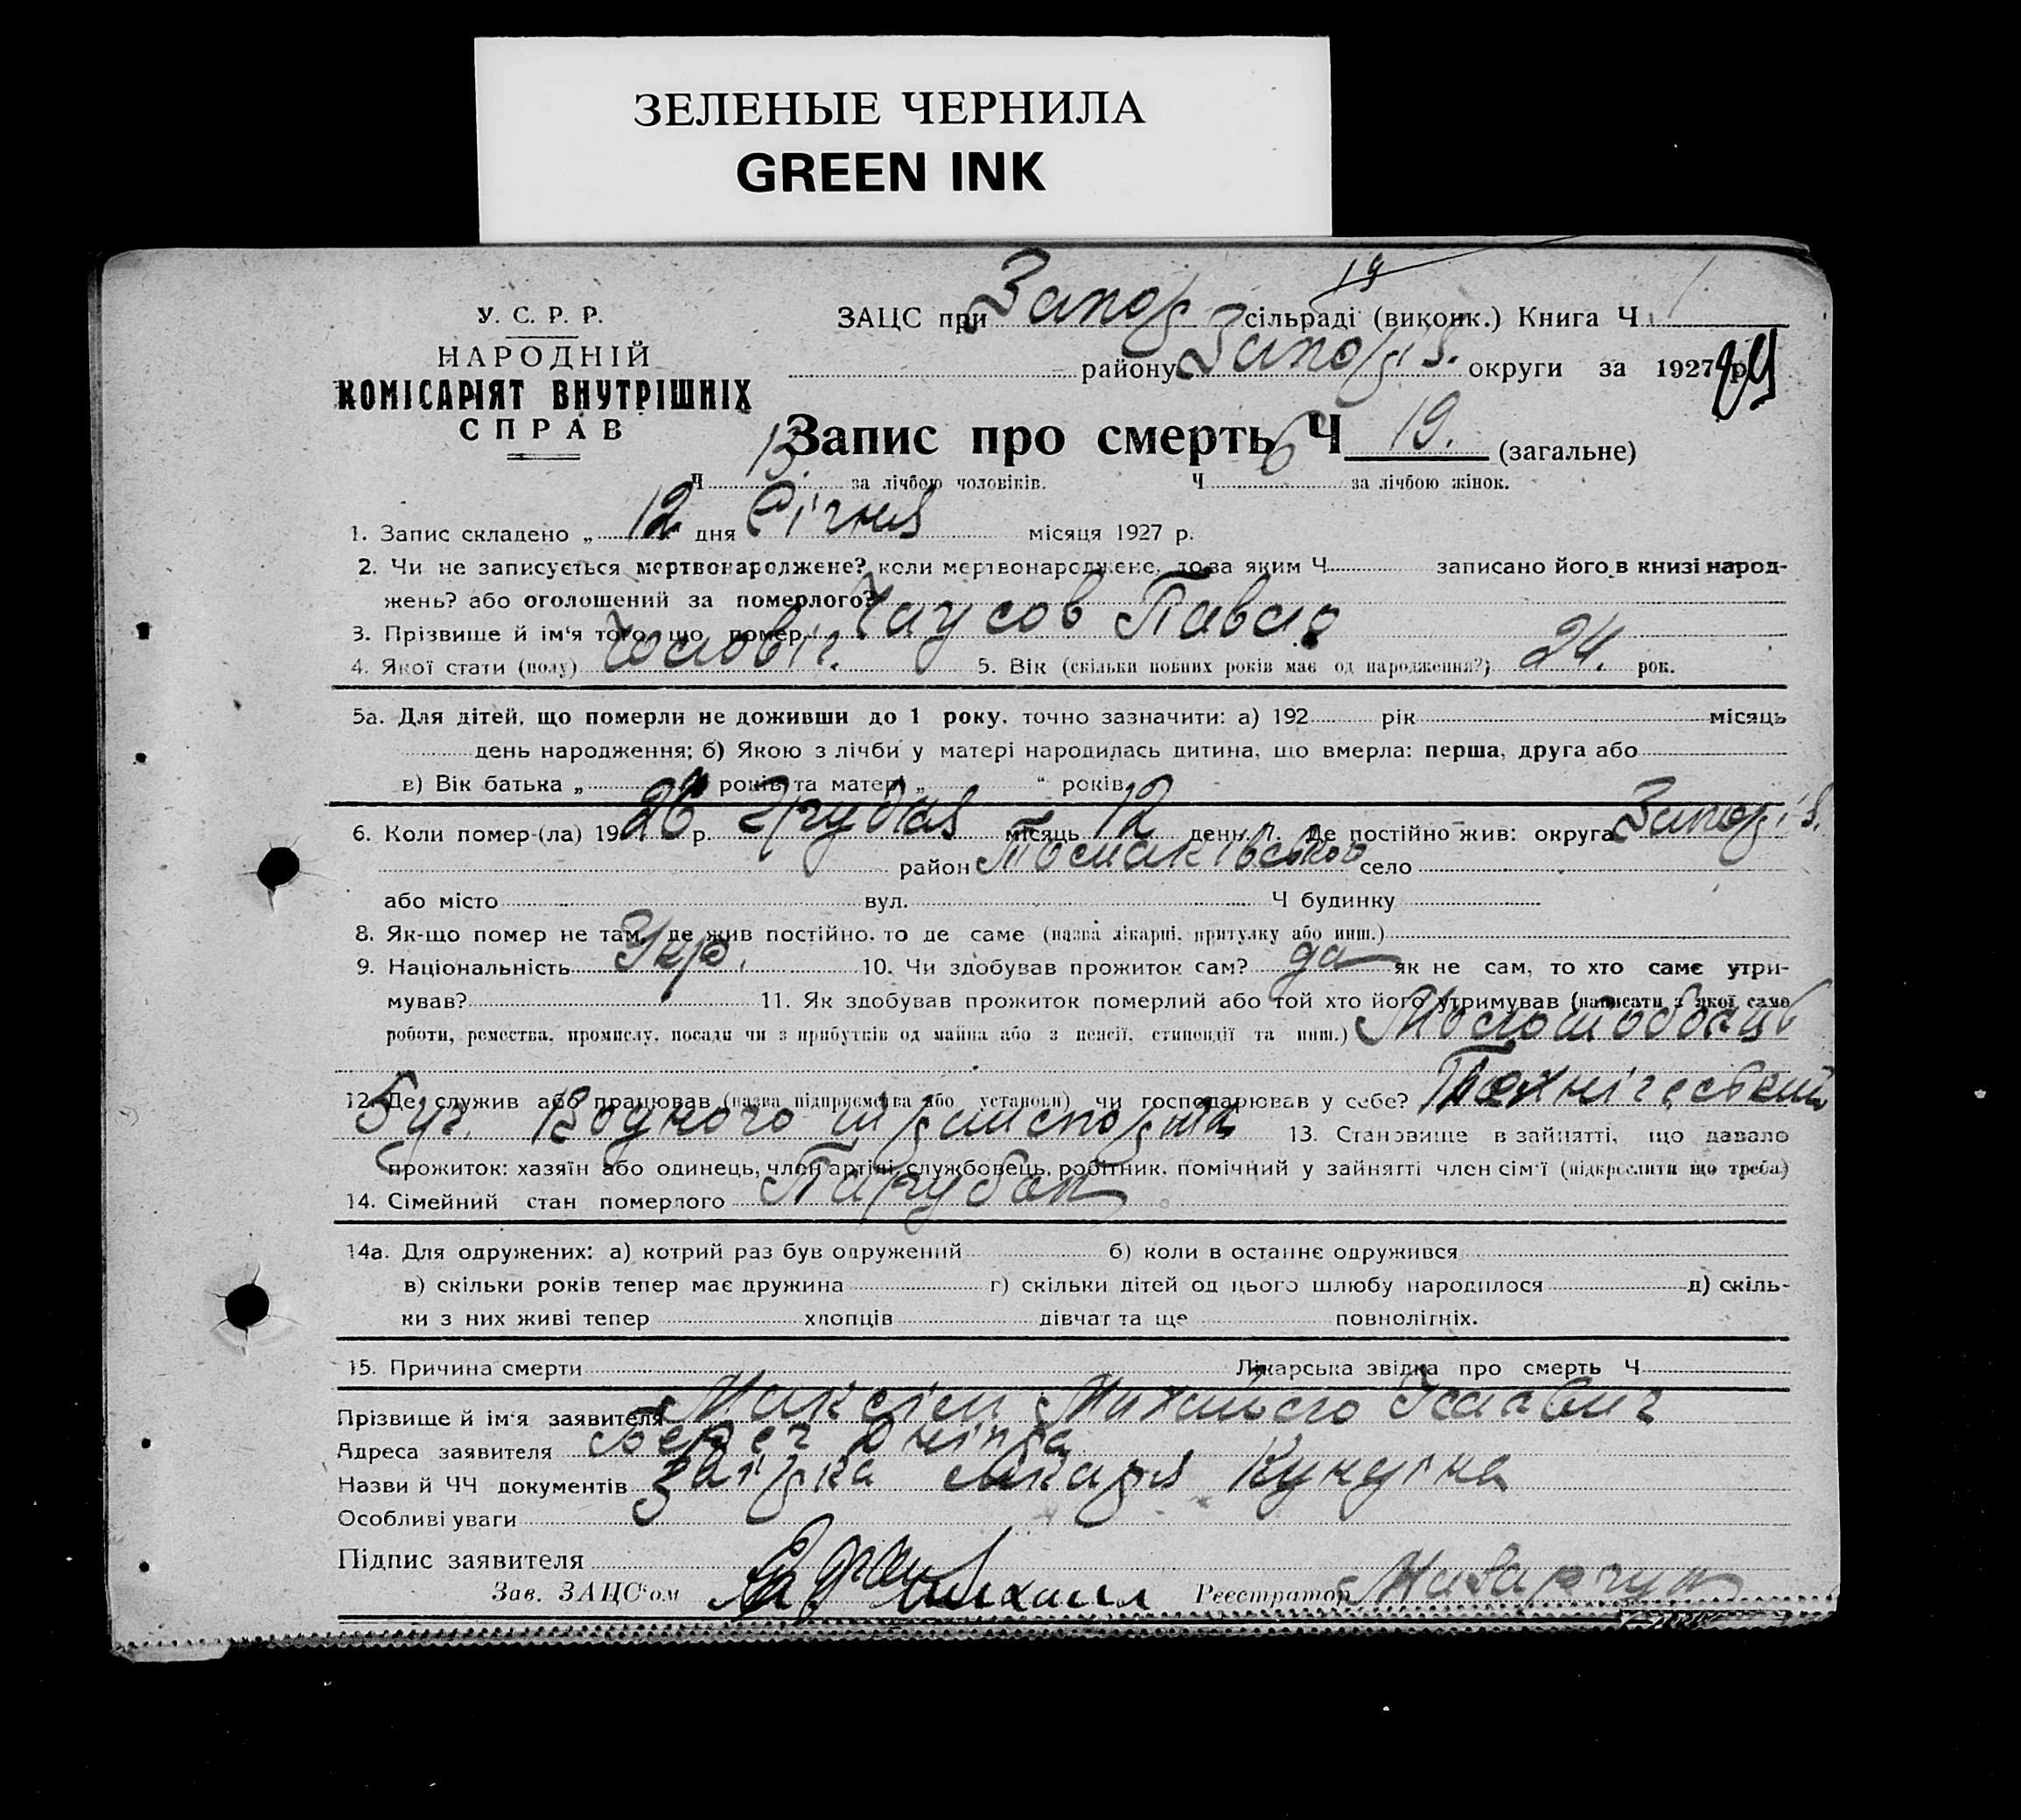 ЗЕЛЕНЫЕ ЧЕРНИЛА
GREEN INK
19
У. С. Р. Р.
НАРОДНІЙ
КОМІСАРІЯТ ВНУТРІШНІХ
СПРАВ
ЗАЦС при Запор сільраді (виконк.) Книга Ч 1
району Запоріз. округи за 1927 р.
Запис про смерть Ч 19. (загальне)
Ч 13. за лічбою чоловіків. Ч 6 за лічбою жінок.
1. Запис складено „ 12 " дня Січня місяця 1927 р.
2. Чи не записується мертвонароджене? коли мертвонароджене, то за яким Ч записано його в книзі народ-
жень? або оголошений за померлого?
3. Прізвище й ім'я того, що помер Чаусов Павло
4. Якої стати (полу) Чоловіч. 5. Вік (скільки повних років має од народження?) 24. рок.
5а. Для дітей, що померли не доживши до 1 року, точно зазначити: а) 192 рік місяць
день народження; б) Якою з лічби у матері народилась дитина, що вмерла: перша, друга або
в) Вік батька „ " років та матері „ " років.
6. Коли помер-(ла) 19 26 р. Грудня місяць 12 день 7. Де постійно жив: округа Запоріз.
район Томаківського село
або місто вул. Ч будинку
8. Як-що помер не там, де жив постійно, то де саме (назва лікарні, притулку або инш.)
9. Національність Укр. 10. Чи здобував прожиток сам? да як не сам, то хто саме утри-
мував? 11. Як здобував прожиток померлий або той хто його утримував (написати з якої саме
роботи, ремества, промислу, посади чи з прибутків од майна або з пенсії, стипендії та инш.) Молотобоєць
12. Де служив або працював (назва підприємства або установи) чи господарював у себе? Технічеський
Буч. Водного транспорта 13. Становище в зайнятті, що давало
прожиток: хазяїн або одинець, член артілі, службовець, робітник, помічний у зайнятті член сім'ї (підкреслити що треба)
14. Сімейний стан померлого Парубок
14а. Для одружених: а) котрий раз був одружений б) коли в останнє одружився
в) скільки років тепер має дружина г) скільки дітей од цього шлюбу народилося д) скіль-
ки з них живі тепер хлопців дівчат та ще повнолітніх.
15. Причина смерти Лікарська звідка про смерть Ч
Прізвище й ім'я заявителя Максім Михайло
Адреса заявителя Берег Дніпра
Назви й ЧЧ документів Звідка лікаря
Особливі уваги
Підпис заявителя
Зав. ЗАЦС'ом Михаил Реєстратор